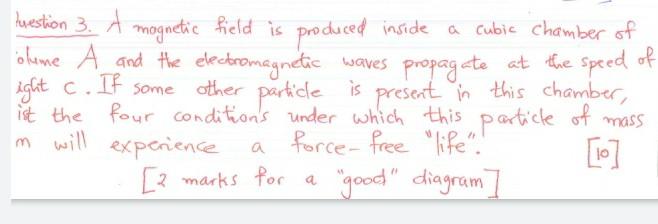 uestion 3. A magnetic field is produced inside a cubic chamber of
olume A and the electromagnetic waves propagate at the speed of
ight c. If some other particle is present in this chamber,
ist the four conditions under which this particle of mass
m will experience a force-free "life". [10]
[2 marks for a "good" diagram]